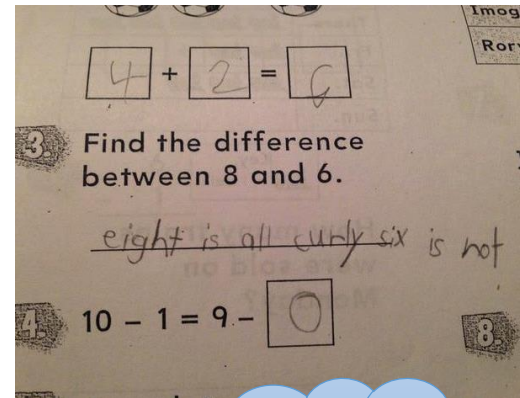 Imog
Rory
4 + 2 = 6
3. Find the difference
between 8 and 6.
eight is all curly six is not
4. 10 – 1 = 9 – 0
8.